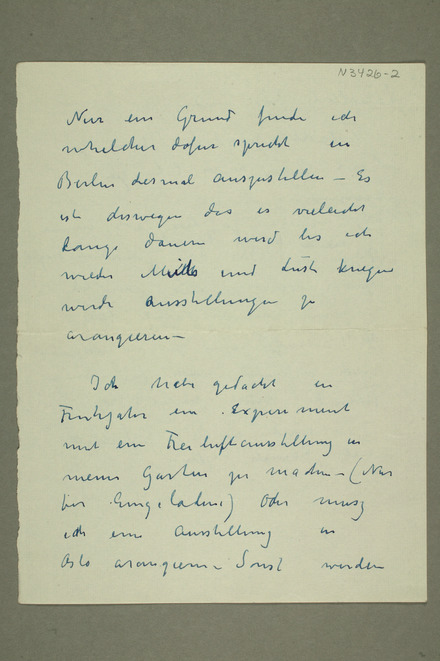 N3426-2
Nur ein Grund finde ich
welcher dafur spricht in
Berlin diesmal auszustellen – Es
ist deswegen das es vieleicht
lange dauern werd bis ich
wieder und Lust kriegen
werde Ausstellungen zu
arangieren –
Ich habe gedacht in
Fruhjahr ein Experiment
mit ein Freiluftausstellung in
meine Garten zu machen – (Nur
fur Eingeladene) Oder musz
ich eine Ausstellung in
Oslo arangieren – Sonst werden